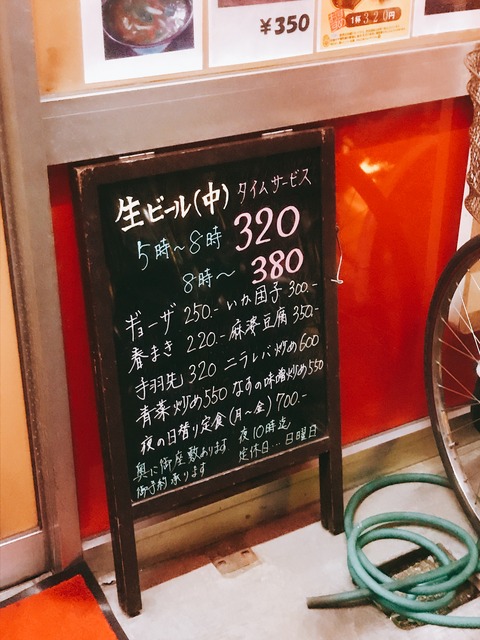 ¥350
1杯320円
生ビール(中) タイムサービス
5時～8時 320
8時～ 380
ギョーザ 250.- いか団子 300.-
春まき 220.- 麻婆豆腐 350.-
手羽先 320 ニラレバ炒め 600
青菜炒め 550 なすの味噌炒め 550
夜の日替り定食(月～金) 700.-
奥に御座敷あります 夜10時迄
御予約承ります 定休日…日曜日